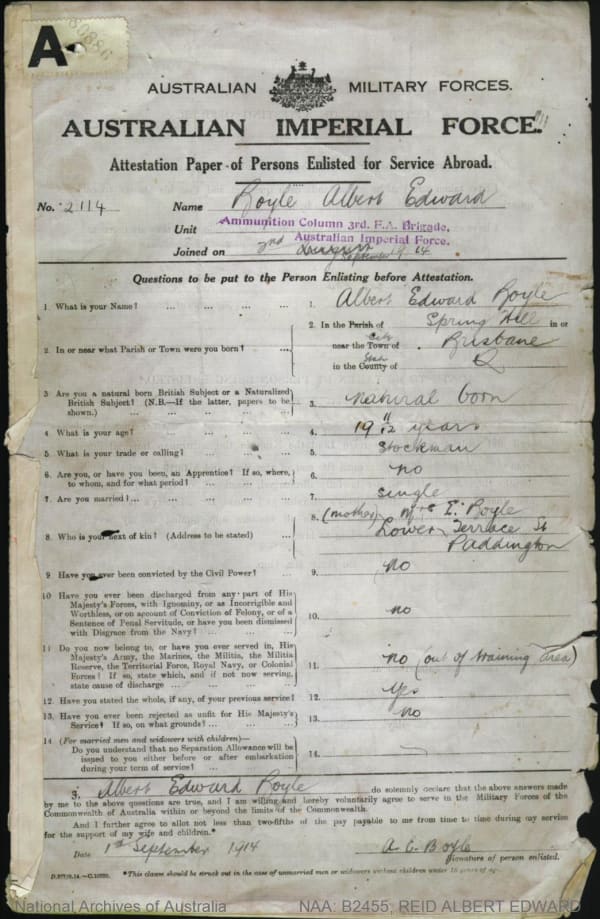 A
80886
AUSTRALIAN MILITARY FORCES.
AUSTRALIAN IMPERIAL FORCE.
Attestation Paper of Persons Enlisted for Service Abroad.
No. 2114 Name Boyle Albert Edward
Unit Ammunition Column 3rd. F.A. Brigade,
Australian Imperial Force.
Joined on 2nd September 1914
Questions to be put to the Person Enlisting before Attestation.
1. What is your Name? ... ... ... ... 1. Albert Edward Boyle
2. In or near what Parish or Town were you born? ... 2. In the Parish of Spring Hill in or
near the Town of City Brisbane
in the County of State Q
3. Are you a natural born British Subject or a Naturalized British Subject? (N.B.—If the latter, papers to be shown.) ... ... ... ... 3. natural born
4. What is your age? ... ... ... ... 4. 19 11/12 years
5. What is your trade or calling? ... ... ... 5. Stockman
6. Are you, or have you been, an Apprentice? If so, where, to whom, and for what period? ... ... ... 6. no
7. Are you married? ... ... ... ... ... 7. single
8. Who is your next of kin? (Address to be stated) ... 8. (mother) Mrs E. Boyle
Lower Terrace St
Paddington
9. Have you ever been convicted by the Civil Power? ... 9. no
10 Have you ever been discharged from any part of His Majesty's Forces, with Ignominy, or as Incorrigible and Worthless, or on account of Conviction of Felony, or of a Sentence of Penal Servitude, or have you been dismissed with Disgrace from the Navy? ... ... ... 10. no
11 Do you now belong to, or have you ever served in, His Majesty's Army, the Marines, the Militia, the Militia Reserve, the Territorial Force, Royal Navy, or Colonial Forces? If so, state which, and if not now serving, state cause of discharge ... ... ... ... 11. no (out of training area)
12. Have you stated the whole, if any, of your previous service? 12. Yes
13. Have you ever been rejected as unfit for His Majesty's Service? If so, on what grounds? ... ... ... 13. no
14 (For married men and widowers with children)—
Do you understand that no Separation Allowance will be issued to you either before or after embarkation during your term of service? ... ... ... 14.
I, Albert Edward Boyle do solemnly declare that the above answers made
by me to the above questions are true, and I am willing and hereby voluntarily agree to serve in the Military Forces of the
Commonwealth of Australia within or beyond the limits of the Commonwealth.
And I further agree to allot not less than two-fifths of the pay payable to me from time to time during my service
for the support of my wife and children.*
Date 1st September 1914 A. E. Boyle
Signature of person enlisted.
*This clause should be struck out in the case of unmarried men or widowers without children under 18 years of age.
National Archives of Australia NAA: B2455, REID ALBERT EDWARD